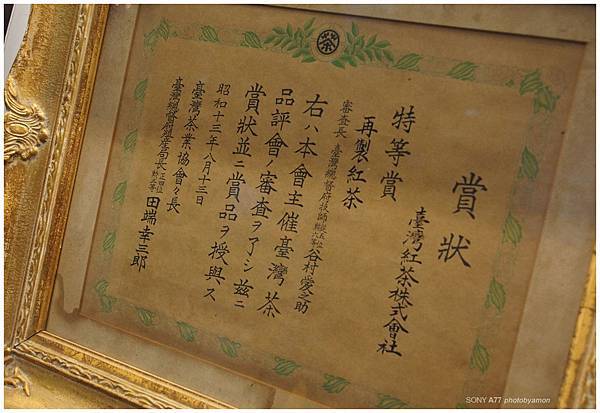 茶
賞狀
臺灣紅茶株式會社
特等賞
再製紅茶
審査長 臺灣總督府技師 谷村愛之助
右ハ本會主催臺灣茶
品評會ノ審査ヲ了シ茲ニ
賞狀並ニ賞品ヲ授與ス
昭和十三年八月十三日
臺灣茶業協會々長
臺灣總督府殖産局長 正四位勲三等 田端幸三郎
SONY A77 photobyamon